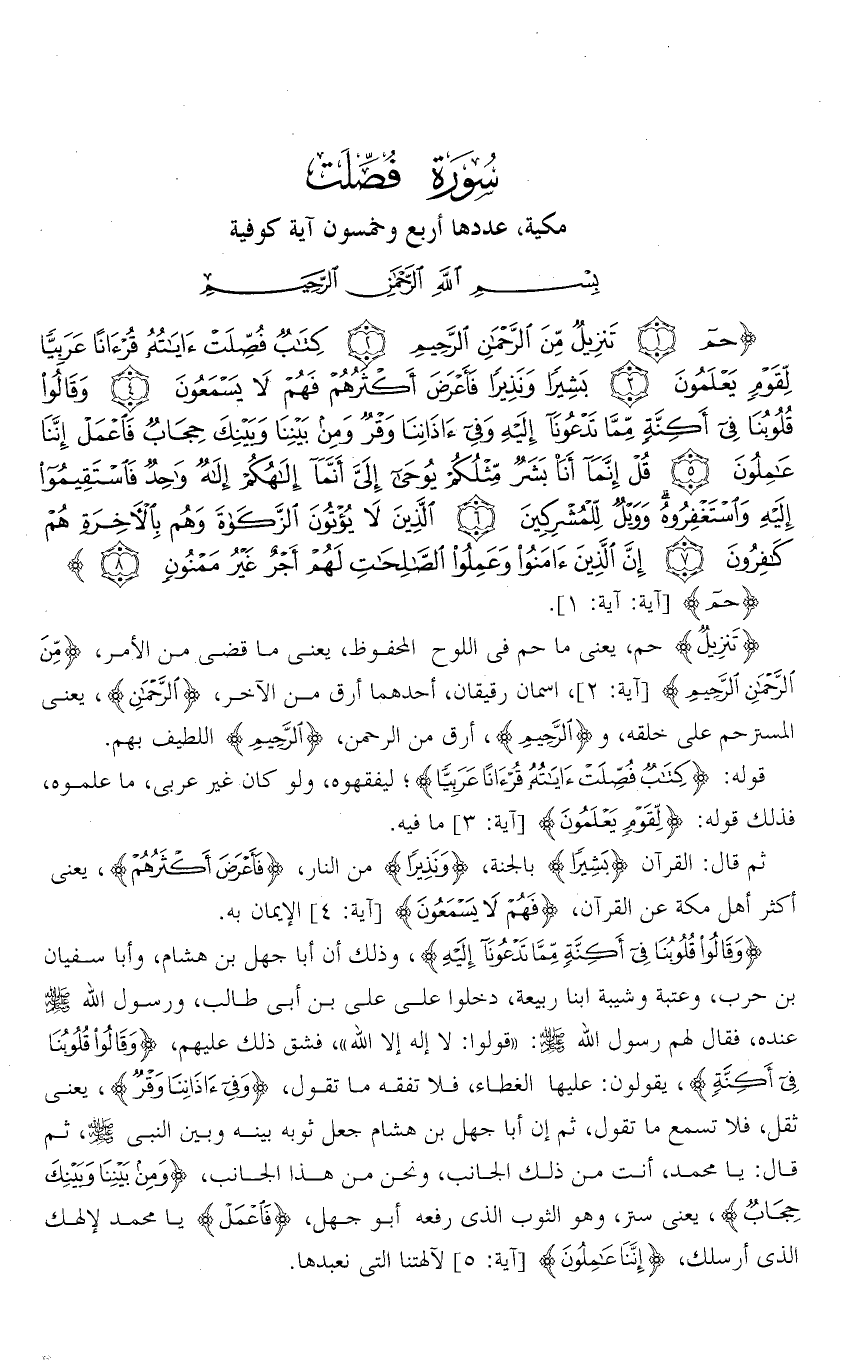 سُورَة فُصِّلَت
مكية، عددها أربع وخمسون آية كوفية
بِسْمِ اللَّهِ الرَّحْمَٰنِ الرَّحِيمِ
﴿حمٓ ۝١ تَنزِيلٌ مِّنَ ٱلرَّحْمَٰنِ ٱلرَّحِيمِ ۝٢ كِتَٰبٌ فُصِّلَتْ ءَايَٰتُهُۥ قُرْءَانًا عَرَبِيًّا
لِّقَوْمٍ يَعْلَمُونَ ۝٣ بَشِيرًا وَنَذِيرًا فَأَعْرَضَ أَكْثَرُهُمْ فَهُمْ لَا يَسْمَعُونَ ۝٤ وَقَالُوا۟
قُلُوبُنَا فِىٓ أَكِنَّةٍ مِّمَّا تَدْعُونَآ إِلَيْهِ وَفِىٓ ءَاذَانِنَا وَقْرٌ وَمِنۢ بَيْنِنَا وَبَيْنِكَ حِجَابٌ فَٱعْمَلْ إِنَّنَا
عَٰمِلُونَ ۝٥ قُلْ إِنَّمَآ أَنَا۠ بَشَرٌ مِّثْلُكُمْ يُوحَىٰٓ إِلَىَّ أَنَّمَآ إِلَٰهُكُمْ إِلَٰهٌ وَٰحِدٌ فَٱسْتَقِيمُوٓا۟
إِلَيْهِ وَٱسْتَغْفِرُوهُ ۗ وَوَيْلٌ لِّلْمُشْرِكِينَ ۝٦ ٱلَّذِينَ لَا يُؤْتُونَ ٱلزَّكَوٰةَ وَهُم بِٱلْءَاخِرَةِ هُمْ
كَٰفِرُونَ ۝٧ إِنَّ ٱلَّذِينَ ءَامَنُوا۟ وَعَمِلُوا۟ ٱلصَّٰلِحَٰتِ لَهُمْ أَجْرٌ غَيْرُ مَمْنُونٍ ۝٨ ﴾
﴿حمٓ﴾ [آية: آية: ١].
﴿تَنزِيلٌ﴾ حم، يعنى ما حم فى اللوح المحفوظ، يعنى ما قضى من الأمر، ﴿مِّنَ
ٱلرَّحْمَٰنِ ٱلرَّحِيمِ﴾ [آية: ٢]، اسمان رقيقان، أحدهما أرق من الآخر، ﴿ٱلرَّحْمَٰنِ﴾، يعنى
المسترحم على خلقه، و﴿ٱلرَّحِيمِ﴾، أرق من الرحمن، ﴿ٱلرَّحِيمِ﴾ اللطيف بهم.
قوله: ﴿كِتَٰبٌ فُصِّلَتْ ءَايَٰتُهُۥ قُرْءَانًا عَرَبِيًّا﴾؛ ليفقهوه، ولو كان غير عربى، ما علموه،
فذلك قوله: ﴿لِّقَوْمٍ يَعْلَمُونَ﴾ [آية: ٣] ما فيه.
ثم قال: القرآن ﴿بَشِيرًا﴾ بالجنة، ﴿وَنَذِيرًا﴾ من النار، ﴿فَأَعْرَضَ أَكْثَرُهُمْ﴾، يعنى
أكثر أهل مكة عن القرآن، ﴿فَهُمْ لَا يَسْمَعُونَ﴾ [آية: ٤] الإيمان به.
﴿وَقَالُوا۟ قُلُوبُنَا فِىٓ أَكِنَّةٍ مِّمَّا تَدْعُونَآ إِلَيْهِ﴾، وذلك أن أبا جهل بن هشام، وأبا سفيان
بن حرب، وعتبة وشيبة ابنا ربيعة، دخلوا على على بن أبى طالب، ورسول الله ﷺ
عنده، فقال لهم رسول الله ﷺ: «قولوا: لا إله إلا الله»، فشق ذلك عليهم، ﴿وَقَالُوا۟ قُلُوبُنَا
فِىٓ أَكِنَّةٍ﴾، يقولون: عليها الغطاء، فلا تفقه ما تقول، ﴿وَفِىٓ ءَاذَانِنَا وَقْرٌ﴾، يعنى
ثقل، فلا تسمع ما تقول، ثم إن أبا جهل بن هشام جعل ثوبه بينه وبين النبى ﷺ، ثم
قال: يا محمد، أنت من ذلك الجانب، ونحن من هذا الجانب، ﴿وَمِنۢ بَيْنِنَا وَبَيْنِكَ
حِجَابٌ﴾، يعنى ستر، وهو الثوب الذى رفعه أبو جهل، ﴿فَٱعْمَلْ﴾ يا محمد لإلهك
الذى أرسلك، ﴿إِنَّنَا عَٰمِلُونَ﴾ [آية: ٥] لآلهتنا التى نعبدها.